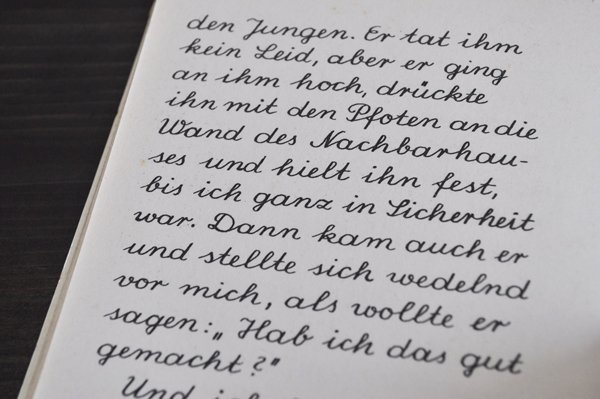 den Jungen. Er tat ihm
kein Leid, aber er ging
an ihm hoch, drückte
ihn mit den Pfoten an die
Wand des Nachbarhau-
ses und hielt ihn fest,
bis ich ganz in Sicherheit
war. Dann kam auch er
und stellte sich wedelnd
vor mich, als wollte er
sagen: „Hab ich das gut
gemacht?"
Und